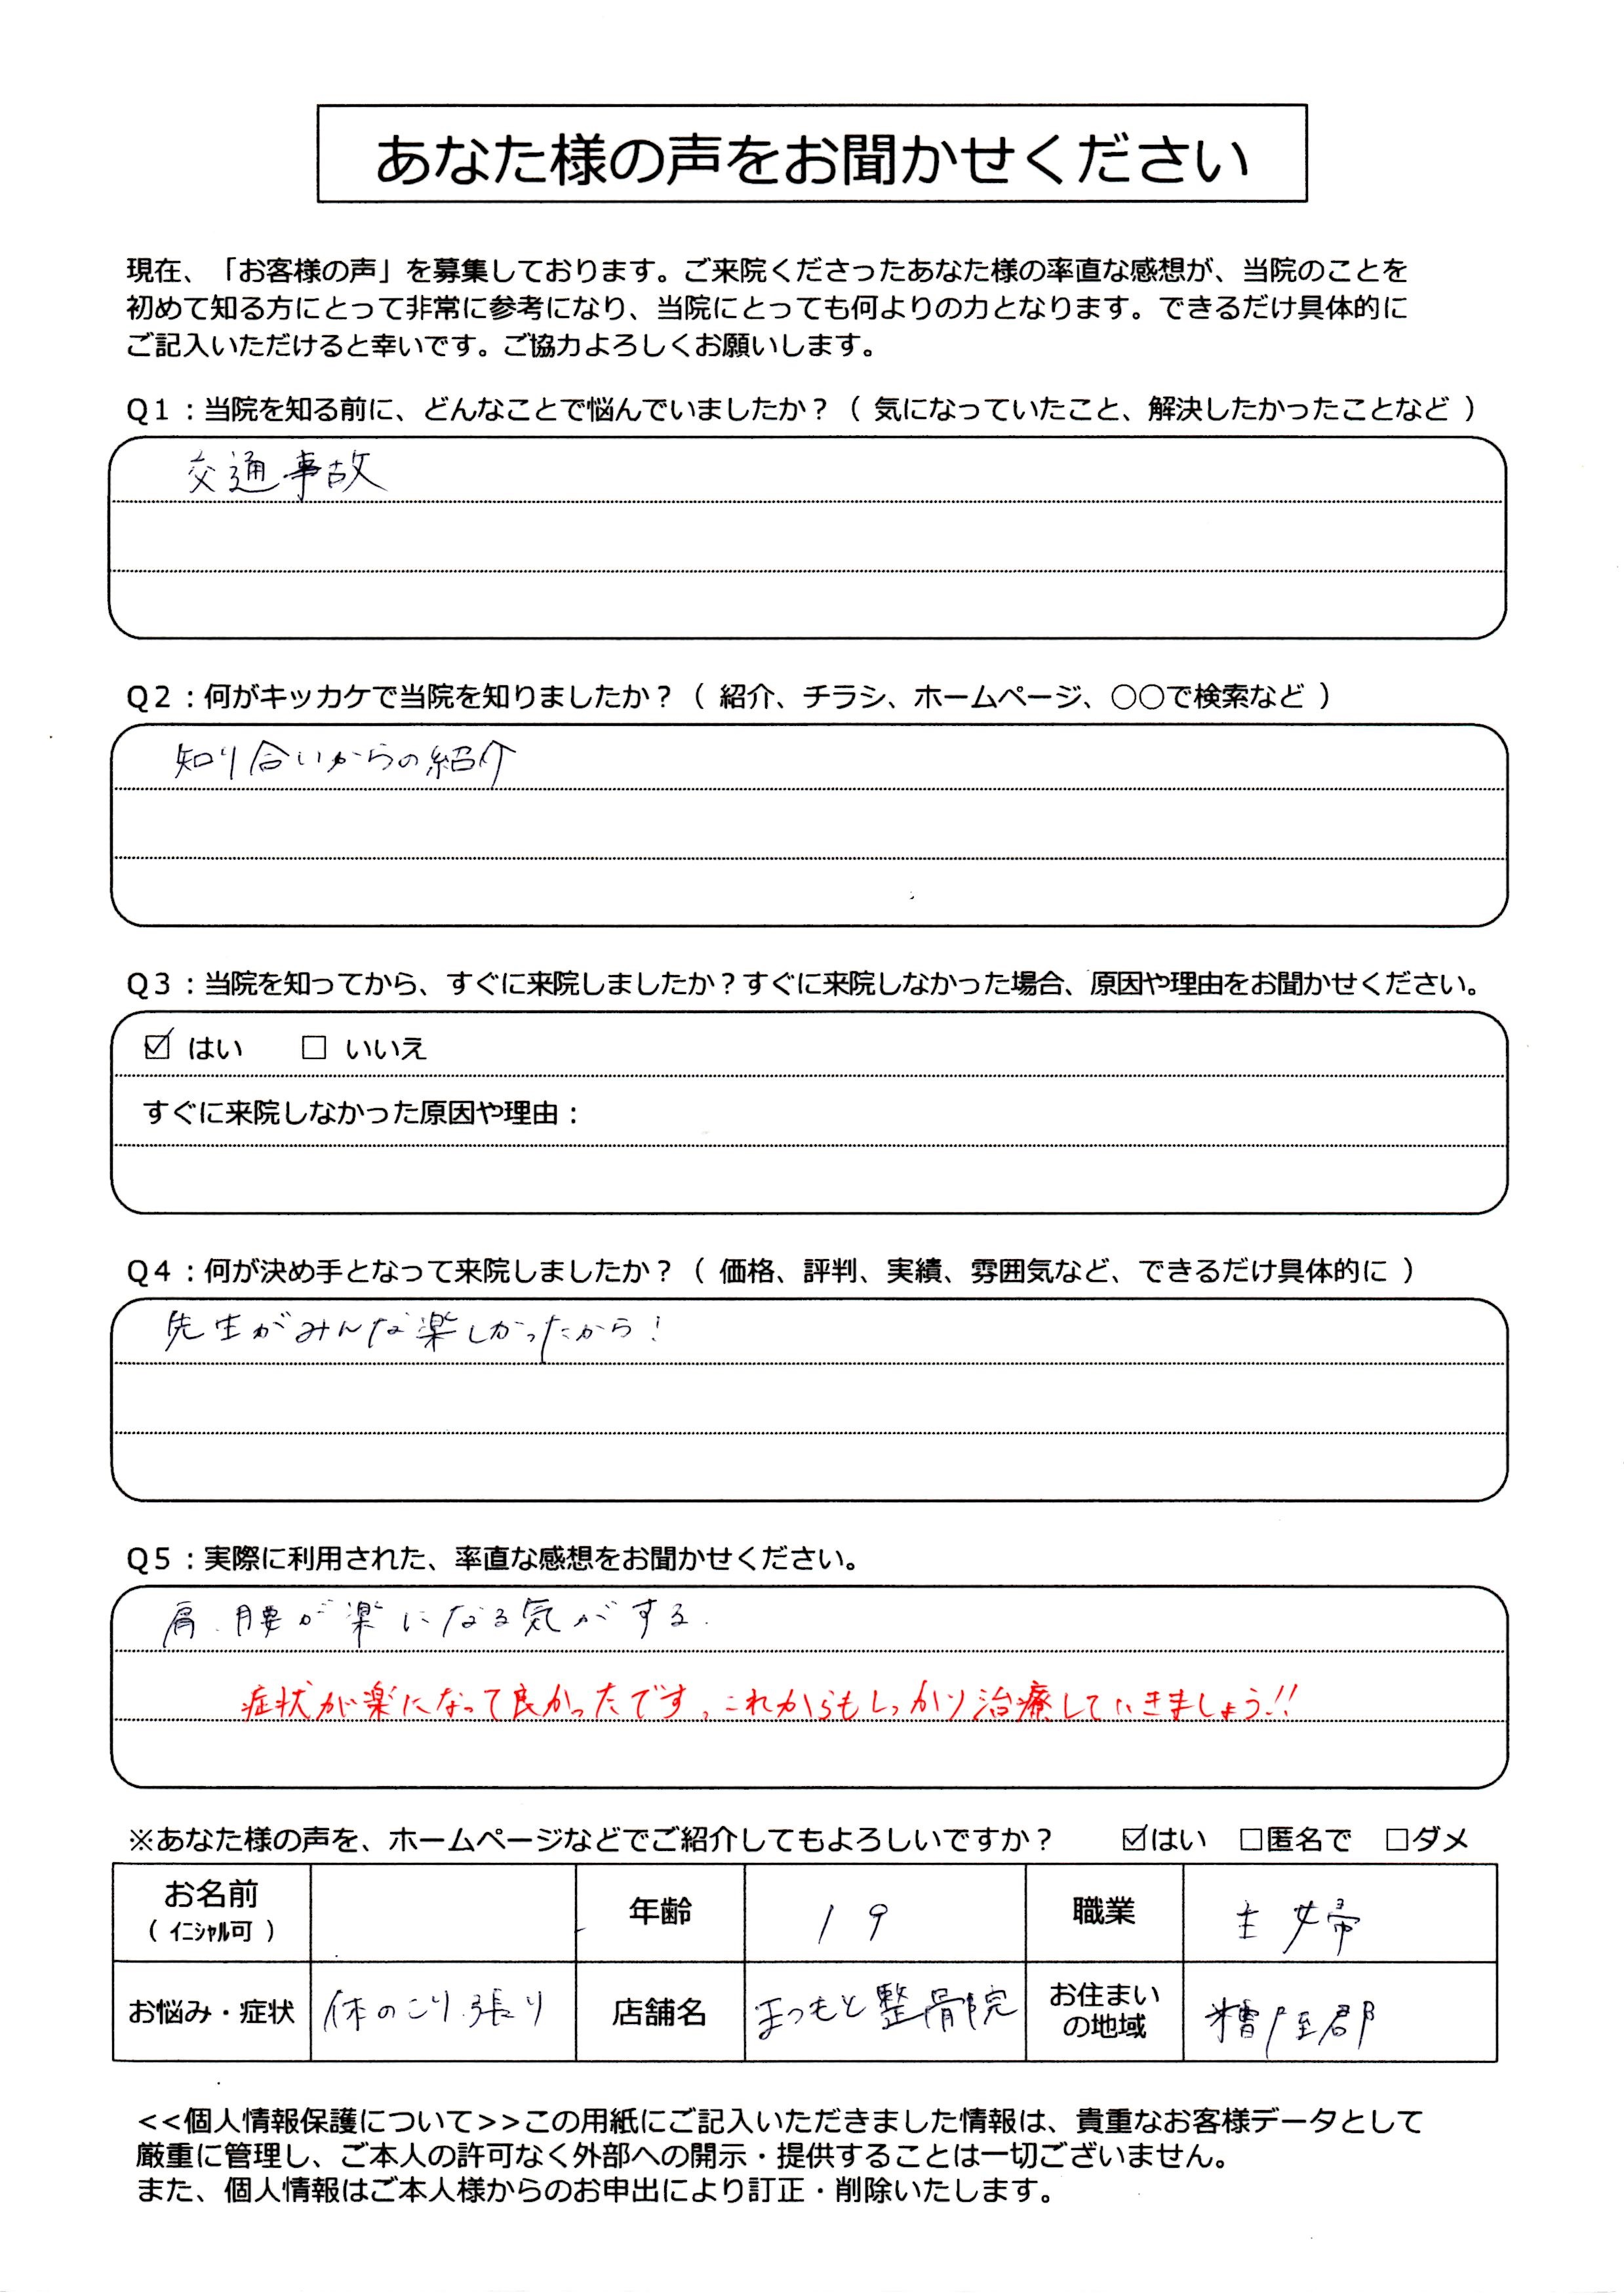 あなた様の声をお聞かせください
現在、「お客様の声」を募集しております。ご来院くださったあなた様の率直な感想が、当院のことを
初めて知る方にとって非常に参考になり、当院にとっても何よりの力となります。できるだけ具体的に
ご記入いただけると幸いです。ご協力よろしくお願いします。
Q1：当院を知る前に、どんなことで悩んでいましたか？（ 気になっていたこと、解決したかったことなど ）
交通事故
Q2：何がキッカケで当院を知りましたか？（ 紹介、チラシ、ホームページ、○○で検索など ）
知り合いからの紹介
Q3：当院を知ってから、すぐに来院しましたか？すぐに来院しなかった場合、原因や理由をお聞かせください。
☑ はい　□ いいえ
すぐに来院しなかった原因や理由：
Q4：何が決め手となって来院しましたか？（ 価格、評判、実績、雰囲気など、できるだけ具体的に ）
先生がみんな楽しかったから！
Q5：実際に利用された、率直な感想をお聞かせください。
肩、腰が楽になる気がする．
症状が楽になって良かったです。これからもしっかり治療していきましょう!!
※あなた様の声を、ホームページなどでご紹介してもよろしいですか？　☑はい　□匿名で　□ダメ
お名前　年齢　19　職業　主婦
（ ｲﾆｼｬﾙ可 ）
お悩み・症状　体のこり、張り　店舗名　まつもと整骨院　お住まいの地域　糟屋郡
<<個人情報保護について>>この用紙にご記入いただきました情報は、貴重なお客様データとして
厳重に管理し、ご本人の許可なく外部への開示・提供することは一切ございません。
また、個人情報はご本人様からのお申出により訂正・削除いたします。